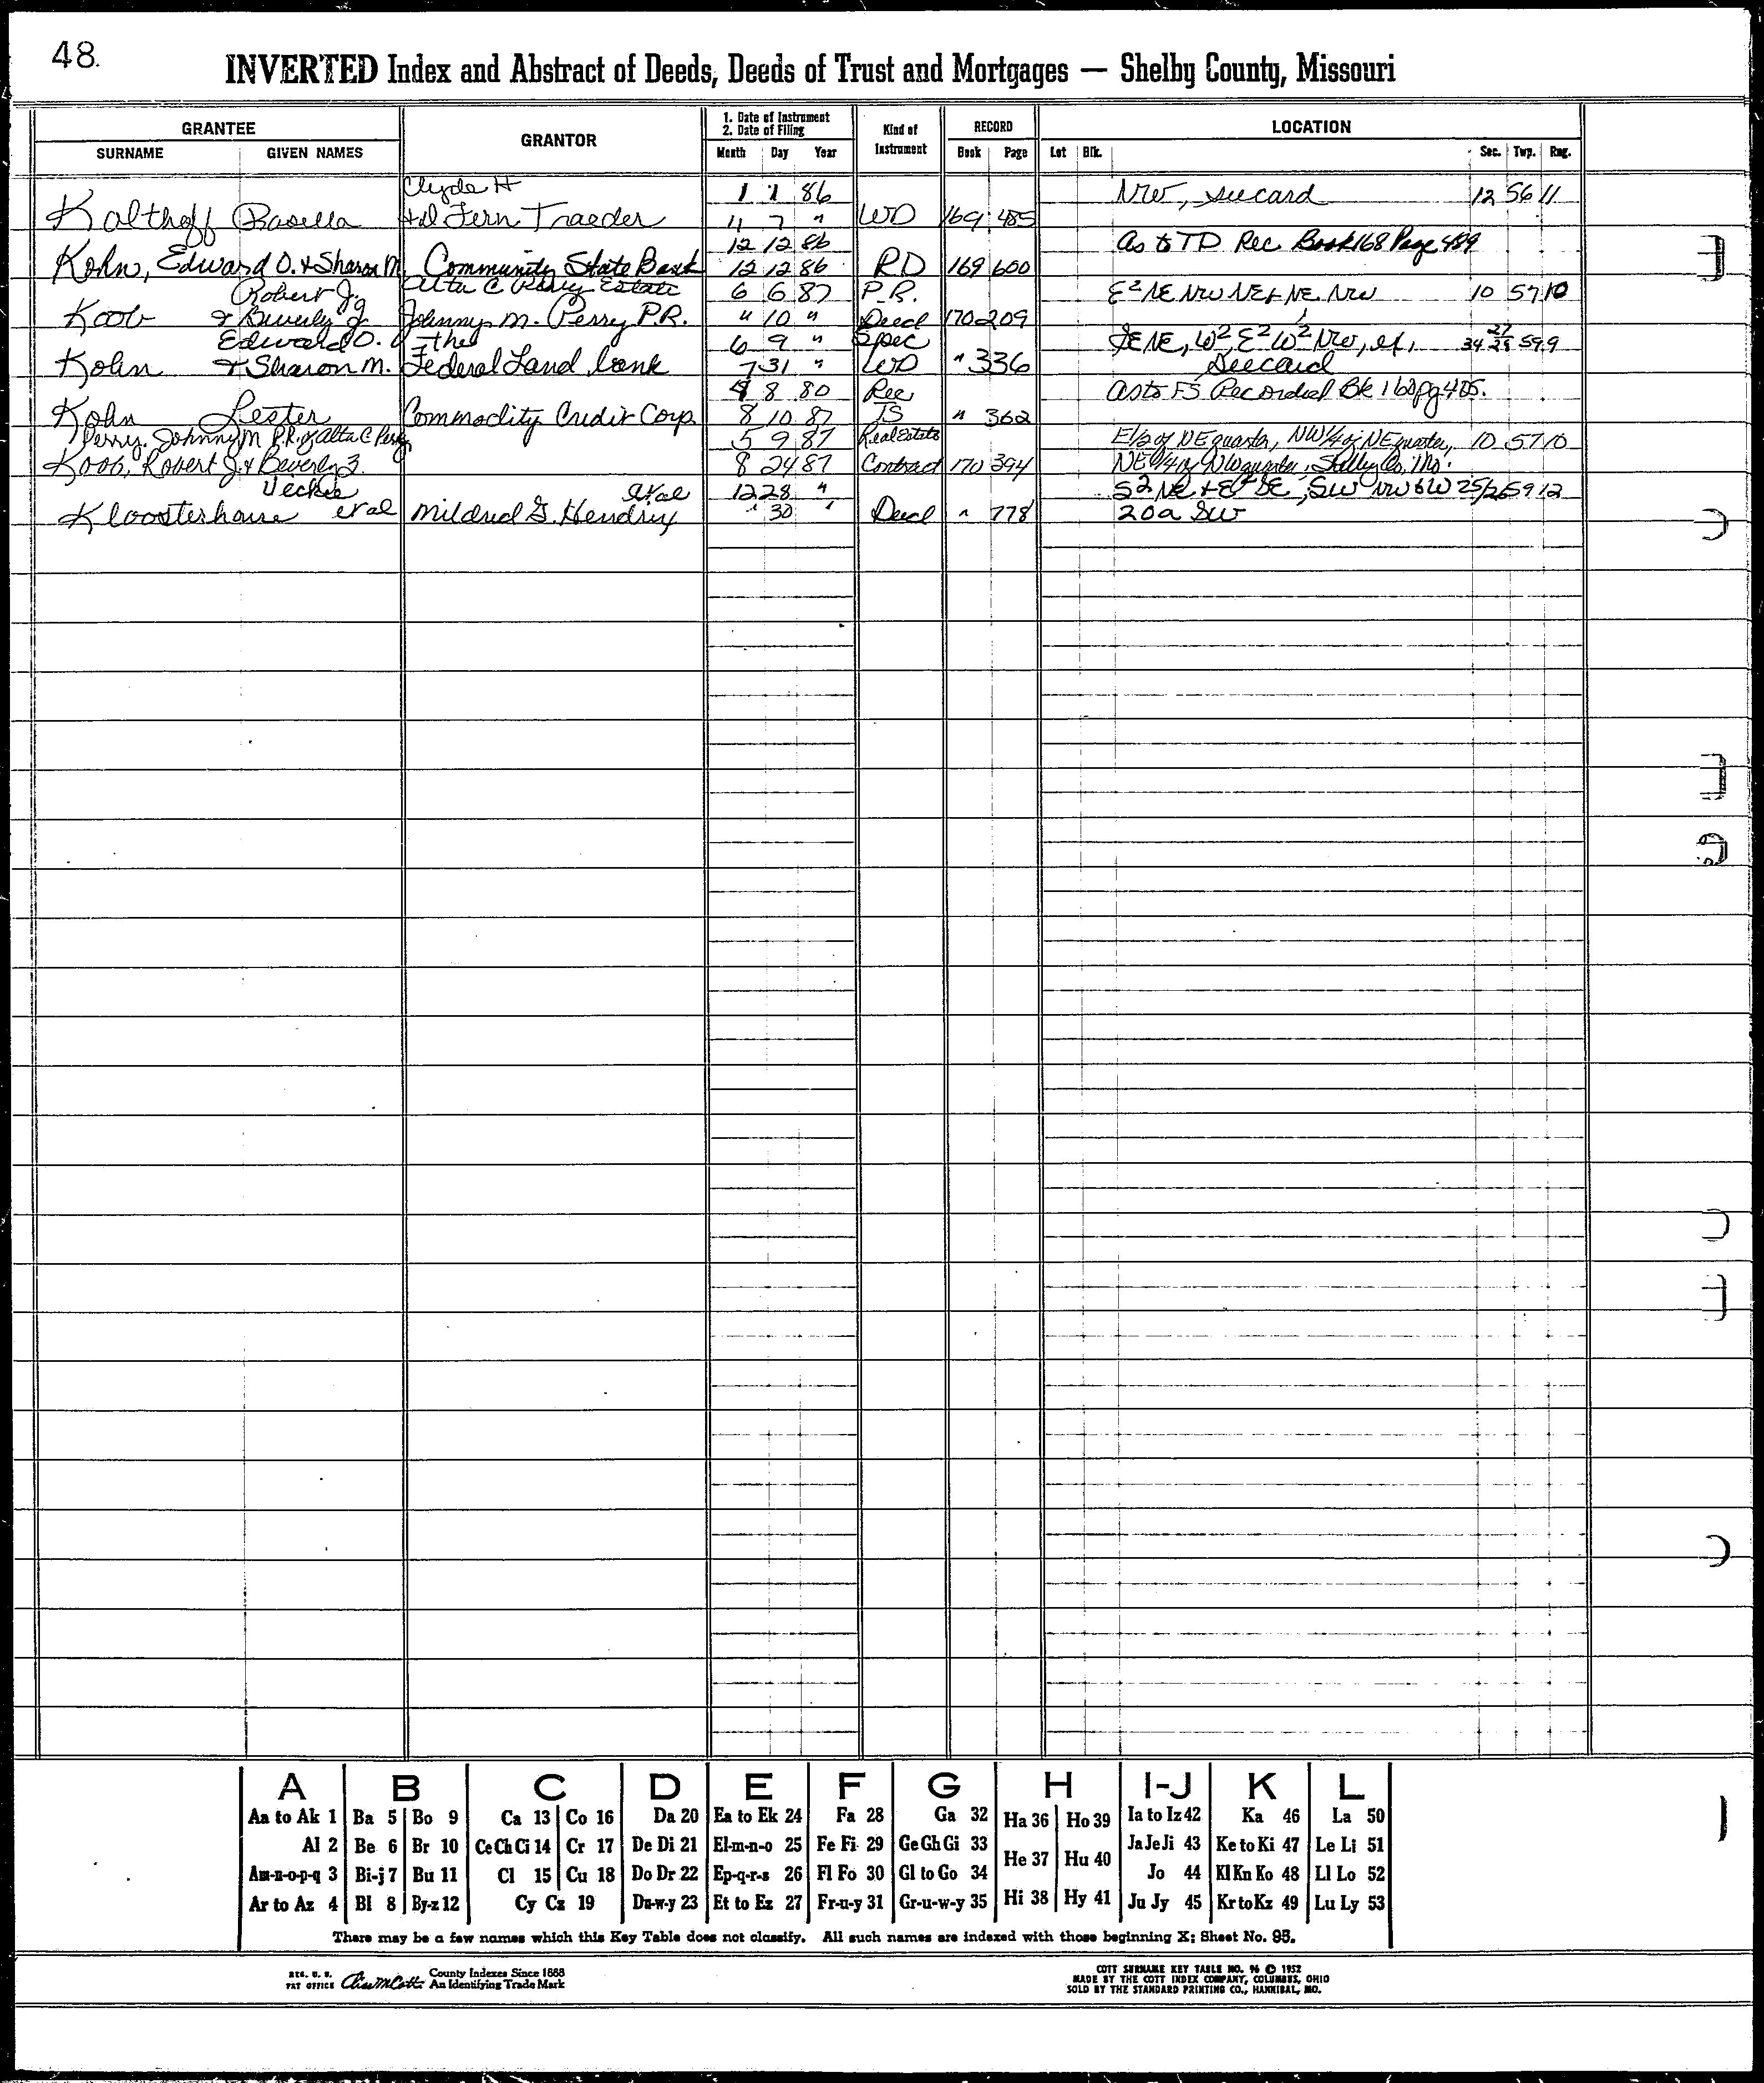 48.
INVERTED Index and Abstract of Deeds, Deeds of Trust and Mortgages — Shelby County, Missouri
GRANTEE GRANTOR 1. Date of Instrument 2. Date of Filing Kind of Instrument RECORD LOCATION
SURNAME GIVEN NAMES Month Day Year Book Page Lot Blk. Sec. Twp. Rng.
Clyde H 1 1 86 NW, seecard 12 56 11
Kalthoff Rosella Fern Traeder 11 7 " WD 169 485
12 12 86 As to TD Rec Book 168 Page 489
Kohn, Edward O. & Sharon M Community State Bank 12 12 86 RD 169 600
Robert J. Alta C Perry Estate 6 6 87 P.R. E² NE NW NE & NE NW 10 57 10
Koob & Beverly J Johnny M. Perry P.R. " 10 " Deed 170 209
Edward O. the 6 9 " Spec SENE, W², E² W² NW, ex, 34 27 28 59 9
Kohn & Sharon M. Federal Land bank 7 31 " WD " 336 Seecard
8 80 Rec as to FS Recorded Bk 160 pg 405.
Kohn Lester Commodity Credit Corp. 8 10 87 TS " 362
Perry, Johnny M P.R. of Alta C Perry 5 9 87 Real Estate E1/2 of NE quarter, NW1/4 of NE quarter, 10 57 10
Koob, Robert J. & Beverly J. 8 24 87 Contract 170 394 NE 1/4 of NW quarter, Shelby Co, Mo.
et al 12 28 " S² NE & E² SE, SW NW 6W 25/26 59 12
Kloosterhouse et al Mildred G. Hendrix " 30 " Deed " 778 20a SW
A B C D E F G H I-J K L
Aa to Ak 1 Ba 5 Bo 9 Ca 13 Co 16 Da 20 Ea to Ek 24 Fa 28 Ga 32 Ha 36 Ho 39 Ia to Iz 42 Ka 46 La 50
Al 2 Be 6 Br 10 Ce Ch Ci 14 Cr 17 De Di 21 El-m-n-o 25 Fe Fi 29 Ge Gh Gi 33 He 37 Hu 40 Ja Je Ji 43 Ke to Ki 47 Le Li 51
Am-n-o-p-q 3 Bi-j 7 Bu 11 Cl 15 Cu 18 Do Dr 22 Ep-q-r-s 26 Fl Fo 30 Gl to Go 34 Jo 44 Kl Kn Ko 48 Ll Lo 52
Ar to Az 4 Bl 8 By-z 12 Cy Cz 19 Du-w-y 23 Et to Ez 27 Fr-u-y 31 Gr-u-w-y 35 Hi 38 Hy 41 Ju Jy 45 Kr to Kz 49 Lu Ly 53
There may be a few names which this Key Table does not classify. All such names are indexed with those beginning X; Sheet No. 95.
REG. U. S. PAT OFFICE County Indexes Since 1888 An Identifying Trade Mark
COTT SURNAME KEY TABLE NO. 96 © 1952
MADE BY THE COTT INDEX COMPANY, COLUMBUS, OHIO
SOLD BY THE STANDARD PRINTING CO., HANNIBAL, MO.